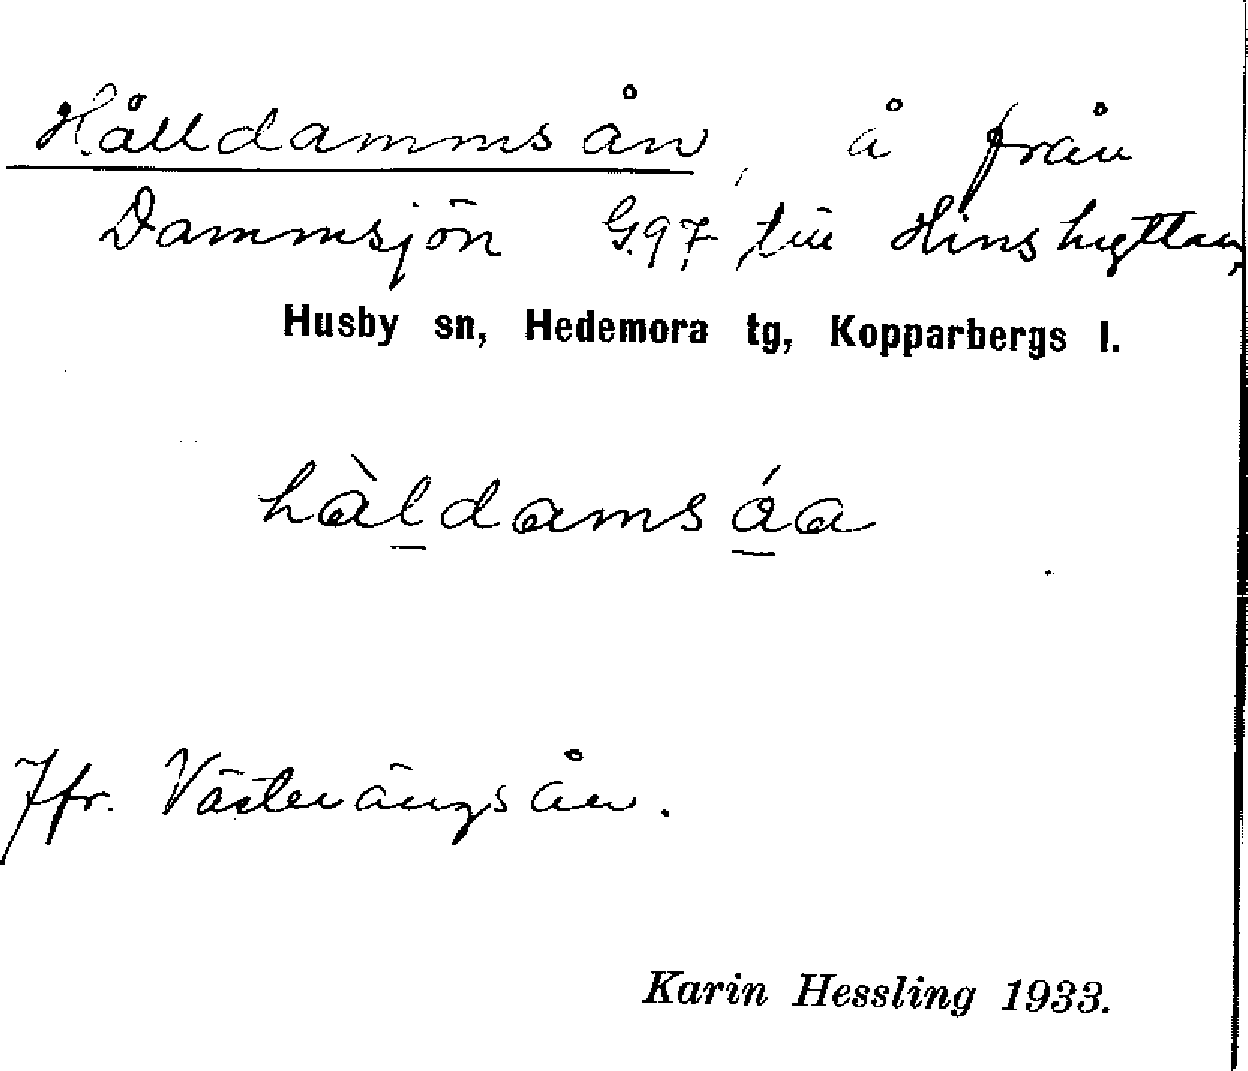 Hålldammsån, å från
Dammsjön G.97, till Hinshyttan,
Husby sn, Hedemora tg, Kopparbergs l.
hàldamsáa
Jfr. Västerängsån.
Karin Hessling 1933.